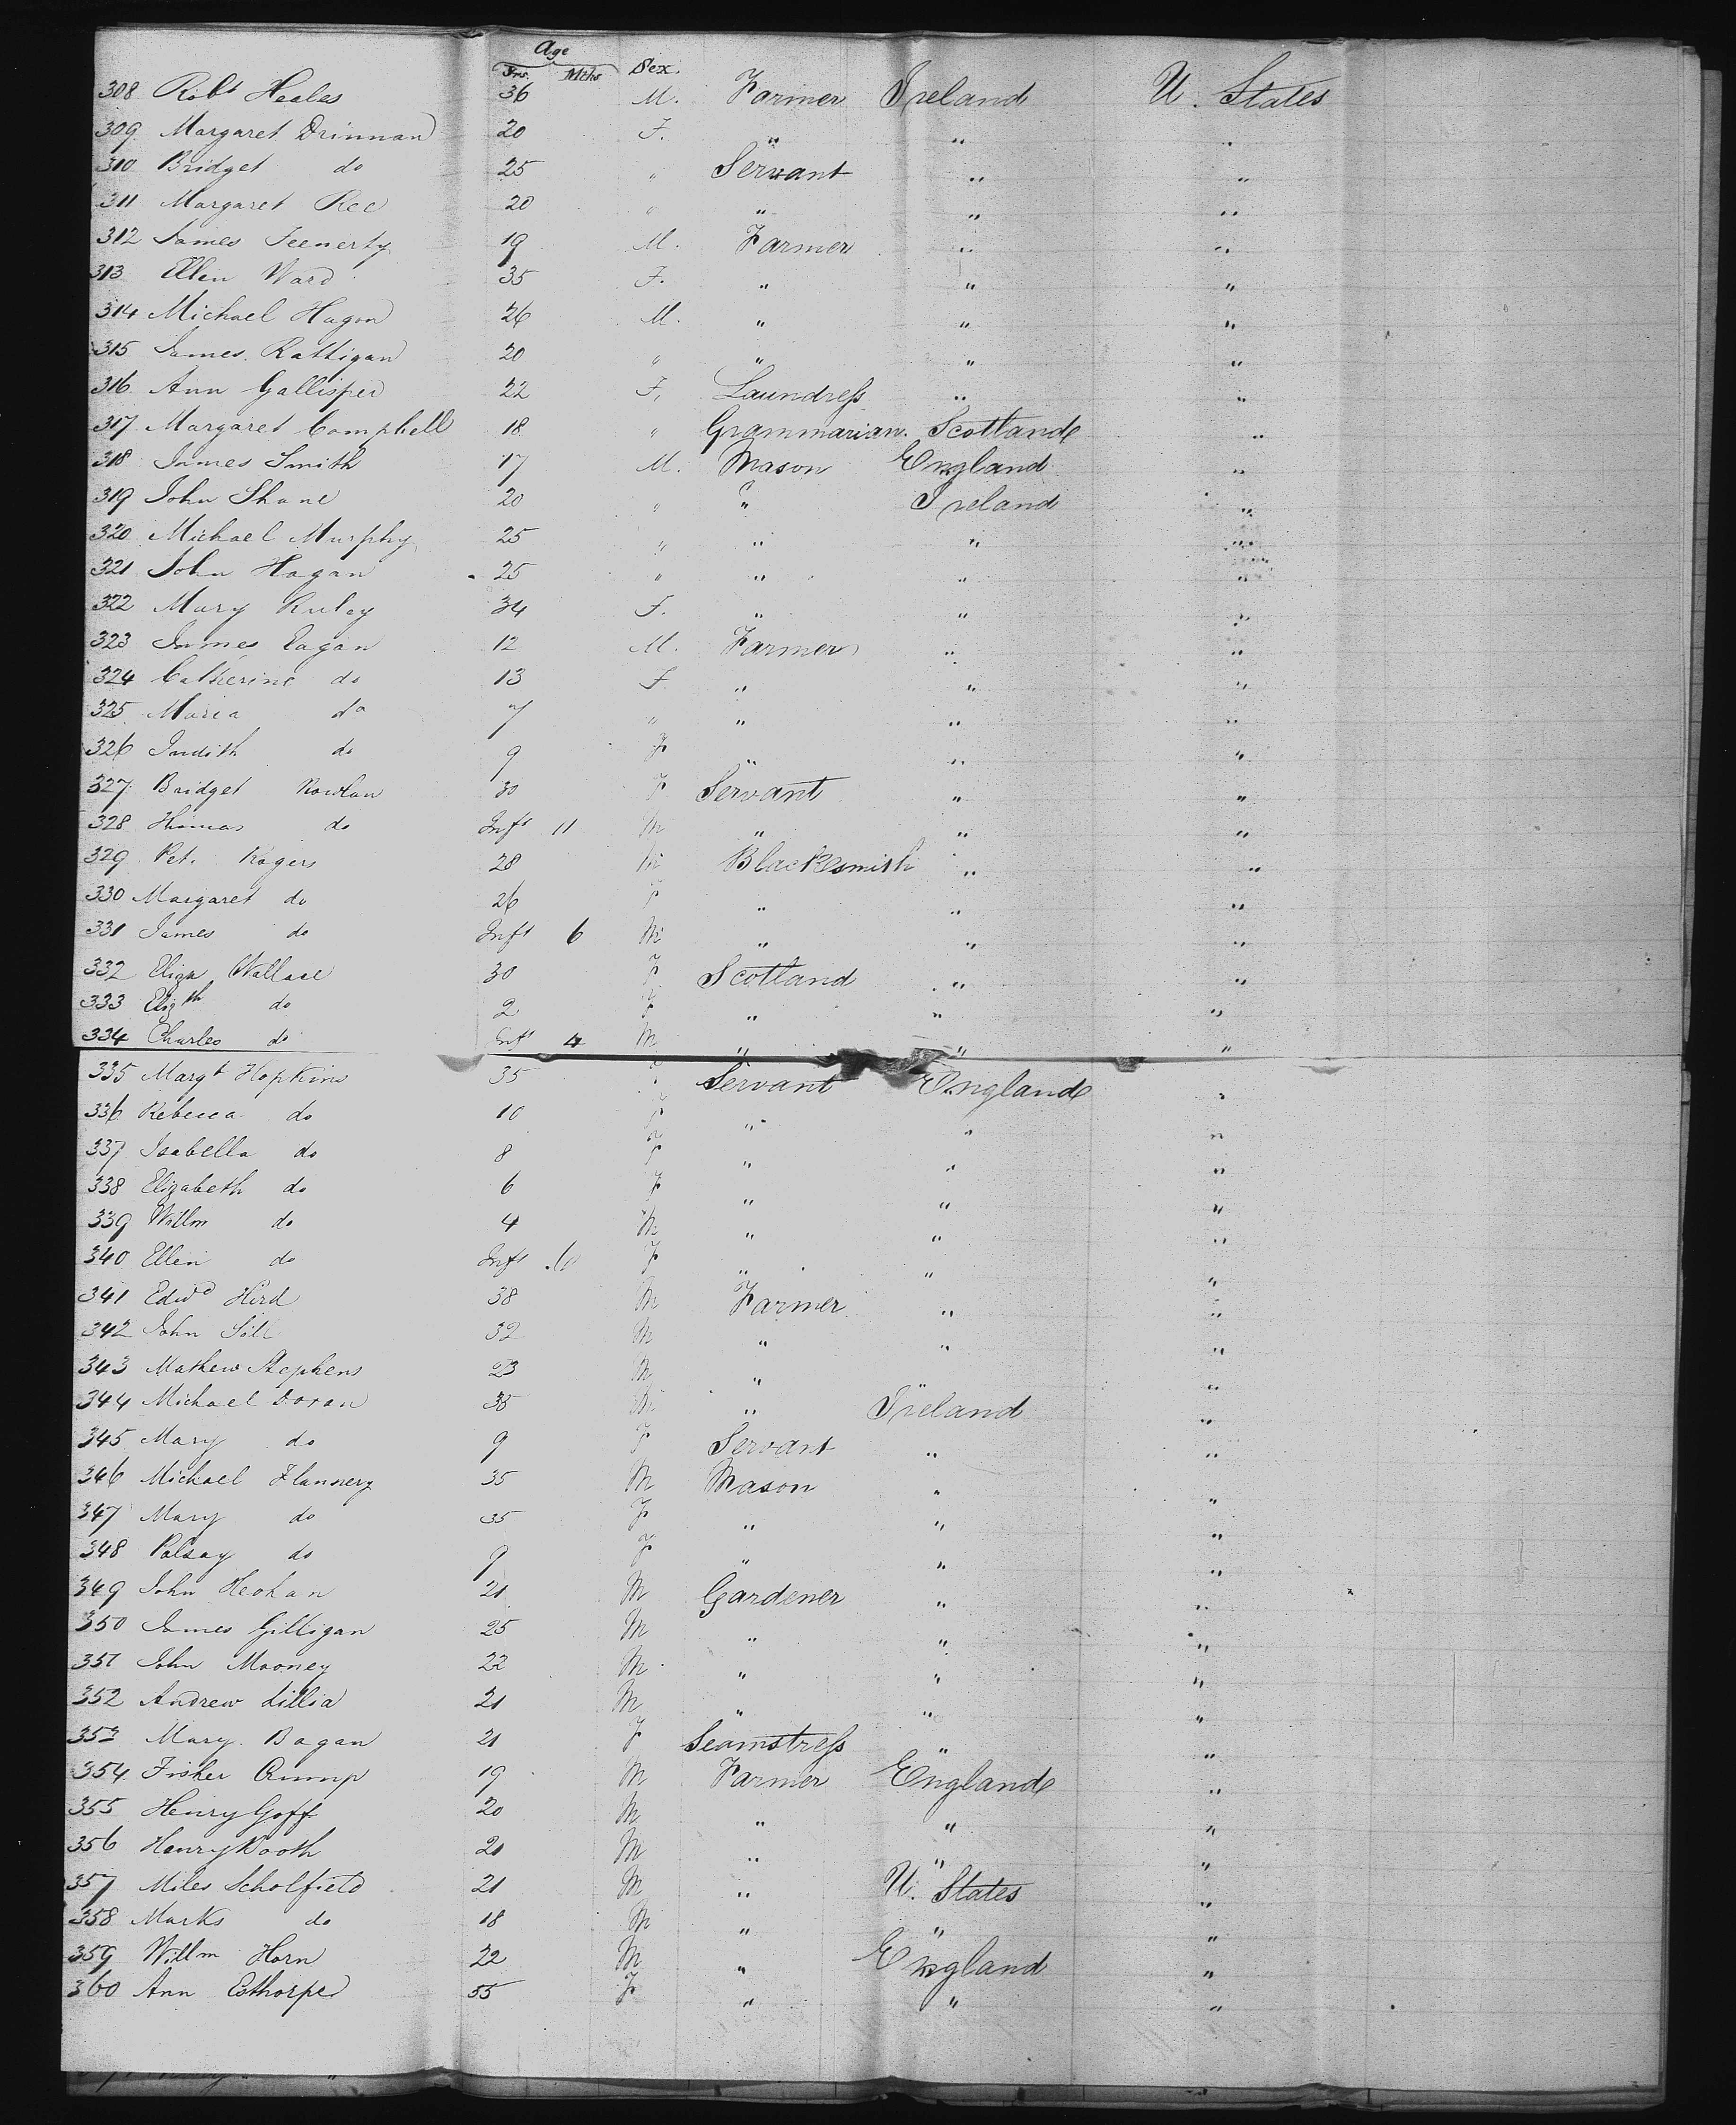 Age
Yrs. Mths Sex.
308 Robt Heales 36 M. Farmer Ireland U. States
309 Margaret Drinnan 20 F. " " "
310 Bridget do 25 " Servant " "
311 Margaret Ree 20 " " " "
312 James Feenerty 19 M. Farmer " "
313 Ellen Ward 35 F. " " "
314 Michael Hagan 26 M. " " "
315 James Rattigan 20 " " " "
316 Ann Gallisped 22 F. Laundress " "
317 Margaret Campbell 18 " Grammarian. Scotland "
318 James Smith 17 M. Mason England "
319 John Shane 20 " " Ireland "
320 Michael Murphy 25 " " " "
321 John Hagan 25 " " " "
322 Mary Ruley 34 F. " " "
323 James Eagan 12 M. Farmer " "
324 Catherine do 13 F. " " "
325 Maria do 7 " " " "
326 Judith do 9 F " " "
327 Bridget Rowlan 30 F Servant " "
328 Thomas do Inft 11 M " " "
329 Pet. Rogers 28 M Blacksmith " "
330 Margaret do 26 F " " "
331 James do Inft 6 M " " "
332 Eliza Wallace 30 F Scotland " "
333 Elizth do 2 F " " "
334 Charles do Inft 4 M " " "
335 Margt Hopkins 35 F Servant England "
336 Rebecca do 10 F " " "
337 Isabella do 8 F " " "
338 Elizabeth do 6 F " " "
339 Willm do 4 M " " "
340 Ellen do Inft F " " "
341 Edwd Hird 38 M Farmer " "
342 John Sill 32 M " " "
343 Mathew Stephens 23 M " " "
344 Michael Doran 35 M " Ireland "
345 Mary do 9 F Servant " "
346 Michael Flannery 35 M Mason " "
347 Mary do 35 F " " "
348 Patsay do 9 F " " "
349 John Heohan 21 M Gardener " "
350 James Gilligan 25 M " " "
351 John Mooney 22 M " " "
352 Andrew Lillia 21 M " " "
353 Mary Bagan 21 F Seamstress " "
354 Fisher Crump 19 M Farmer England "
355 Henry Goff 20 M " " "
356 Henry Booth 21 M " " "
357 Miles Scholfield 21 M " U. States "
358 Marks do 18 M " " "
359 Willm Horn 22 M " England "
360 Ann Esthorpe 55 F " " "